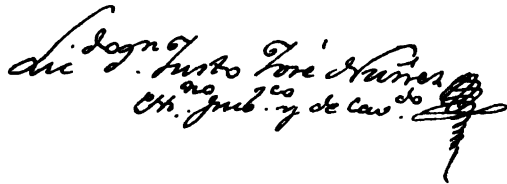 Lic.do D.n Justo José Nuñez
Es.no pub.co y de Cav.do